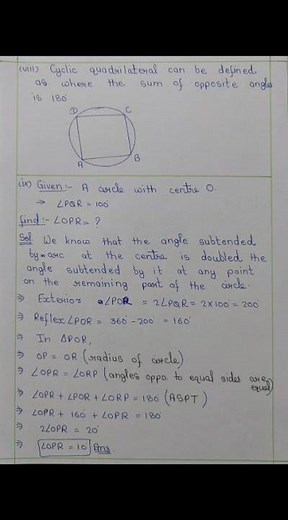 (viii) Cyclic quadrilateral can be defined
as where the sum of opposite angles
is 180°
D
C
A
B
(ix) Given:- A circle with centre O.
→ ∠PQR = 100°
find:- ∠OPR = ?
Sol We know that the angle subtended
by arc at the centre is doubled the
angle subtended by it at any point
on the remaining part of the circle.
⇒ Exterior ∠POR = 2∠PQR = 2×100° = 200°
⇒ Reflex∠POR = 360° - 200° = 160°
⇒ In ΔPOR,
⇒ OP = OR (radius of circle)
⇒ ∠OPR = ∠ORP (angles oppo. to equal sides are equal)
⇒ ∠OPR + ∠POR + ∠ORP = 180° (ASPT)
⇒ ∠OPR + 160° + ∠OPR = 180°
⇒ 2∠OPR = 20°
⇒ ∠OPR = 10° Ans